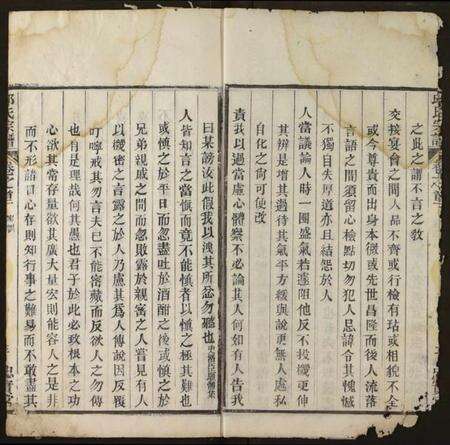 之此之謂不言之教
交接宴會之間人品不齊或行檢有玷或相貌不全
或今尊貴而出身本微或先世昌隆而後人流落
言語之間須留心檢點切勿犯人忌諱令其愧憾
不獨自失厚道亦且結怨於人
人當議論人時一團盛氣若遽阻他反不投機更伸
其辨是增其過待其氣平方緩與說更無人處私
自化之尚可使改
責我以過當虛心體察不必論其人何如有人告我
曰某謗汝此假我以洩其所忿勿聽也
人皆知言之當慎而竟不能慎者以慎之極其難也
或慎之於平日而忽盡吐於酒酣之後或慎之於
兄弟親戚之間而忽敗露於親密之人嘗見有人
以機密之言露之於人乃慮其爲人傳說因反覆
叮嚀戒其勿言夫己不能密藏而反欲人之勿傳
也自是理哉何其愚也君子於此必政根本之功
心欲其常存量欲其廣大量宏則能容人之是非
而不形諸口心存則知行事之難易而不敢盡其